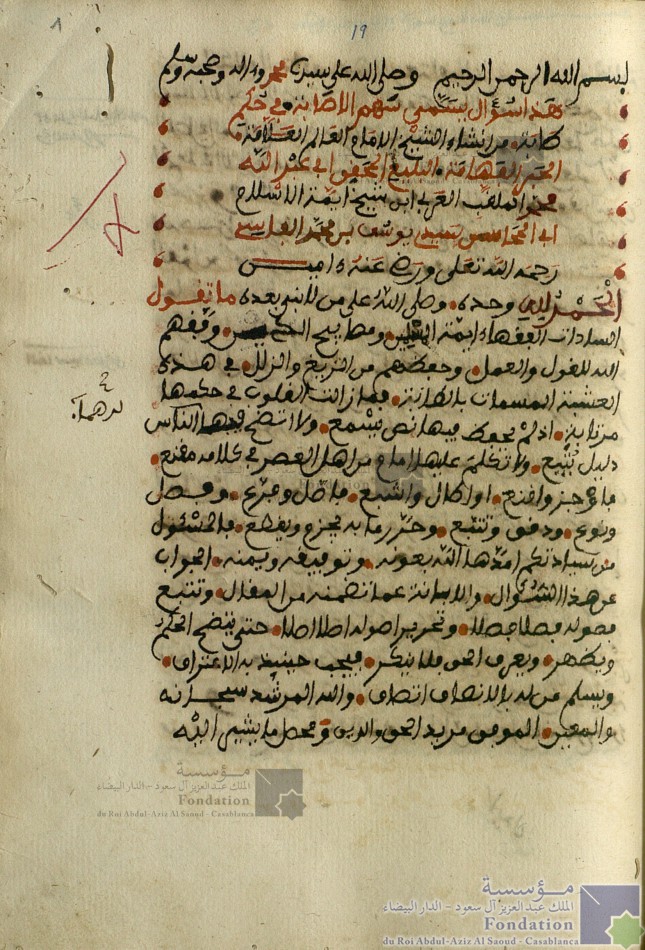 19
بسم الله الرحمن الرحيم وصلى الله على سيدنا محمد وءاله وصحبه وسلم
هذا سؤال يسمى سهم الاصابة في حكم
طابة من انشاء الشيخ الامام العالم العلامة
الحبر الفهامة البليغ المحقق ابي عبد الله
محمد الملقب العربي ابن شيخ ايمة الاسلام
ابي المحاسن سيدي يوسف بن محمد الفاسي
رحمه الله تعلى ورضي عنه ءاميـــن
الحمد لله وحده وصلى الله على من لا نبي بعده ما تقول
السادات الفقهاء ايمة الدين ومصابيح وفقهم
الله للقول والعمل وحفظهم من الزيغ والزلل في هذه
العشبة المسمات بالطابة فما زالت القلوب في حكمها
مرتابة اذ لم يحفظ فيها نص يسمع ولا اتضح الناس
دليل يتبع ولا تكلم عليها امام من اهل العصر بكلام مقنع
ما اوجز واقنع او اطال واشبع فاصل وفرع وفصل
ونوع ودقق وتتبع وحرر ما به يجزم ويقطع فالمسئول
من سيادتكم امدها الله بعونه وتوفيقه ويمنه الجواب
عن هذا السؤال والابانة عما تضمنه من المقال وتتبع
فصوله فصلا فصلا وتحرير اصوله اصلا اصلا حتى يتضح الحكم
ويظهر ويعرف الحق فلا ينكر فيجب حينئذ به الاعتراف
ويسلم من له بالانصاف اتصاف والله المرشد سبحانه
والمعين الموفق مريد الحق والدين
مؤسسة
الملك عبد العزيز آل سعود – الدار البيضاء
Fondation
du Roi Abdul-Aziz Al Saoud - Casablanca
مؤسسة
الملك عبد العزيز آل سعود – الدار البيضاء
Fondation
du Roi Abdul-Aziz Al Saoud - Casablanca